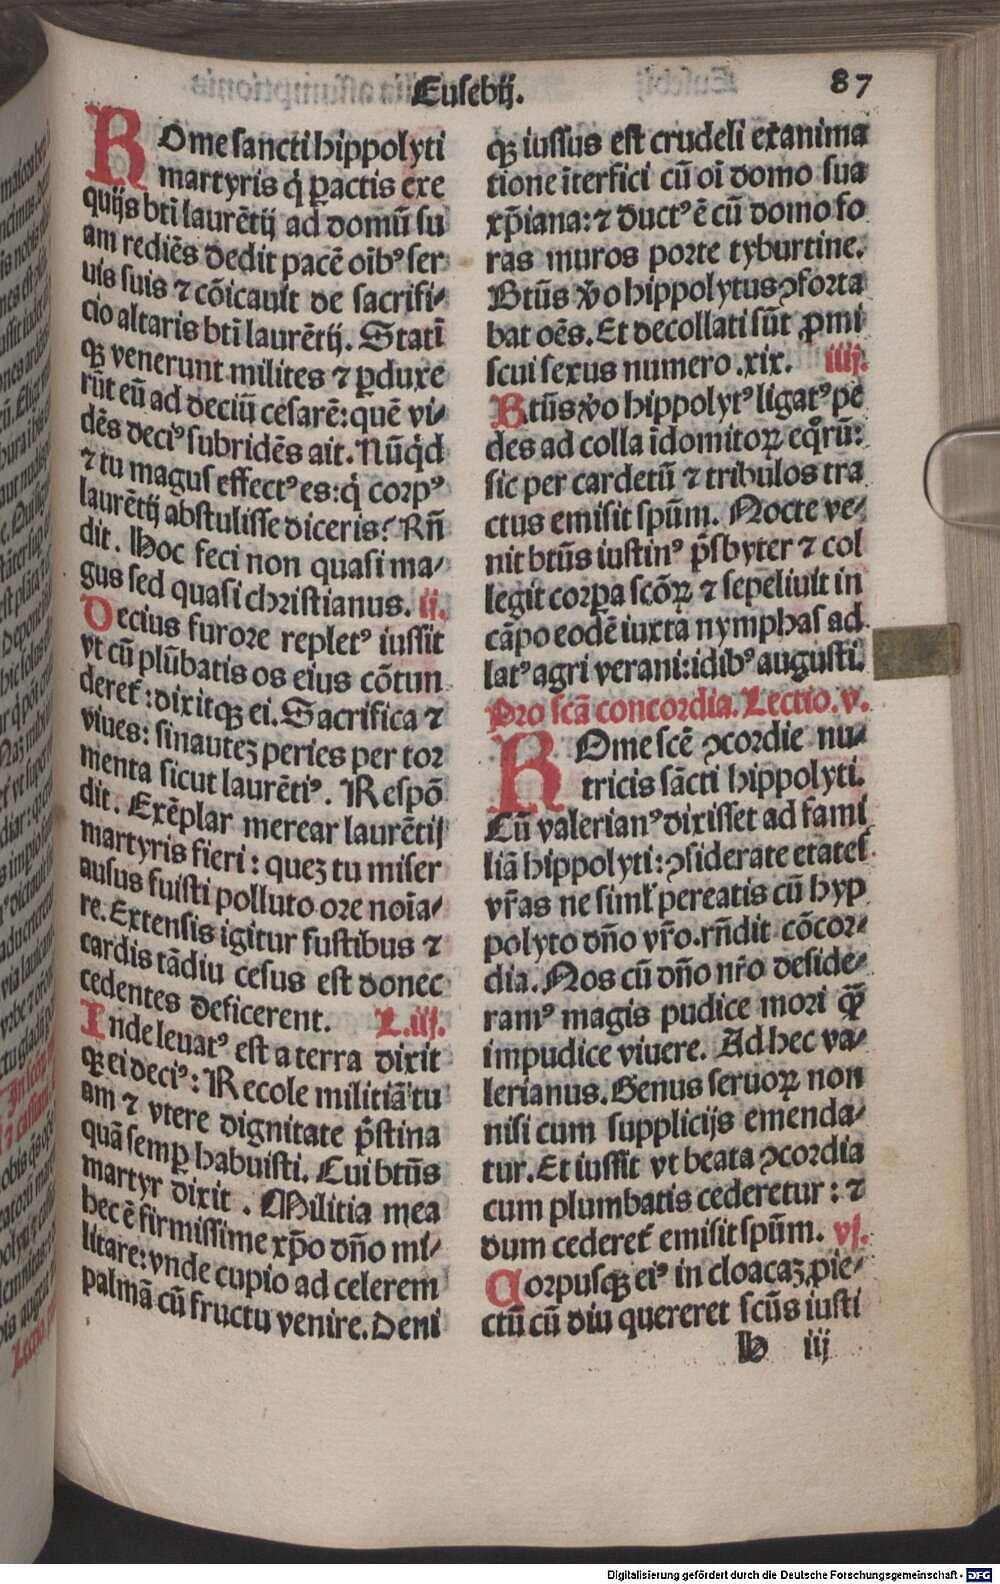 Eusebij.
87
ROme sancti hippolyti
martyris q̇ ꝑactis exe
quijs btī laurētij ad domū su
am rediēs dedit pacē oībꝰ ser
uis suis ⁊ cōicauit de sacrifi⸗
cio altaris btī laurētij. Statī
qꝫ venerunt milites ⁊ ꝑduxe
rūt eū ad deciū cesarē: quē vi⸗
dēs deciꝰ subridēs ait. Nūq̇d
⁊ tu magus effectꝰ es: q̇ corpꝰ
laurētij abstulisse diceris? Rn̄
dit. Hoc feci non quasi ma⸗
gus sed quasi christianus. ij.
Decius furore repletꝰ iussit
vt cū plūbatis os eius cōtun
deret̄: dixitqꝫ ei. Sacrifica ⁊
viues: sinautez peries per tor
menta sicut laurētiꝰ. Respō
dit. Exēplar merear laurētij
martyris fieri: quez tu miser
ausus fuisti polluto ore noīa⸗
re. Extensis igitur fustibus ⁊
cardis tādiu cesus est donec
cedentes deficerent. L. iij.
Inde leuatꝰ est a terra dixit
qꝫ ei deciꝰ: Recole militiā tu
am ⁊ vtere dignitate p̄stina
quā semꝑ habuisti. Cui btūs
martyr dixit. Militia mea
hec ē firmissime xp̄o dn̄o mi⸗
litare: vnde cupio ad celerem
palmā cū fructu venire. Deni
qꝫ iussus est crudeli exanima
tione īterfici cū oī domo sua
xp̄iana: ⁊ ductꝰ ē cū domo fo
ras muros porte tyburtine.
Btūs v̊o hippolytus ꝯforta
bat oēs. Et decollati sūt ꝓmi
scui sexus numero .xix. iiij.
Btūs v̊o hippolytꝰ ligatꝰ pe
des ad colla īdomitoꝝ eq̊rū:
sic per cardetū ⁊ tribulos tra
ctus emisit spūm. Nocte ve⸗
nit btūs iustinꝰ p̄sbyter ⁊ col
legit corꝑa scōꝝ ⁊ sepeliuit in
cāpo eodē iuxta nymphas ad
latꝰ agri verani: idibꝰ augusti.
Pro scā concordia. Lectio. v.
ROme scē ꝯcordie nu⸗
tricis sācti hippolyti.
Cū valerianꝰ dixisset ad fami
liā hippolyti: ꝯsiderate etates
vr̄as ne siml̄ pereatis cū hyp
polyto dn̄o vr̄o. rn̄dit cōcor⸗
dia. Nos cū dn̄o nr̄o deside⸗
ramꝰ magis pudice mori qꝫ̄
impudice viuere. Ad hec va⸗
lerianus. Genus seruoꝝ non
nisi cum supplicijs emenda⸗
tur. Et iussit vt beata ꝯcordia
cum plumbatis cederetur: ⁊
dum cederet̄ emisit spūm. vj.
Corpusqꝫ eiꝰ in cloacaz ꝓie⸗
ctū cū diu quereret scūs iusti
H iij
Digitalisierung gefördert durch die Deutsche Forschungsgemeinschaft - DFG